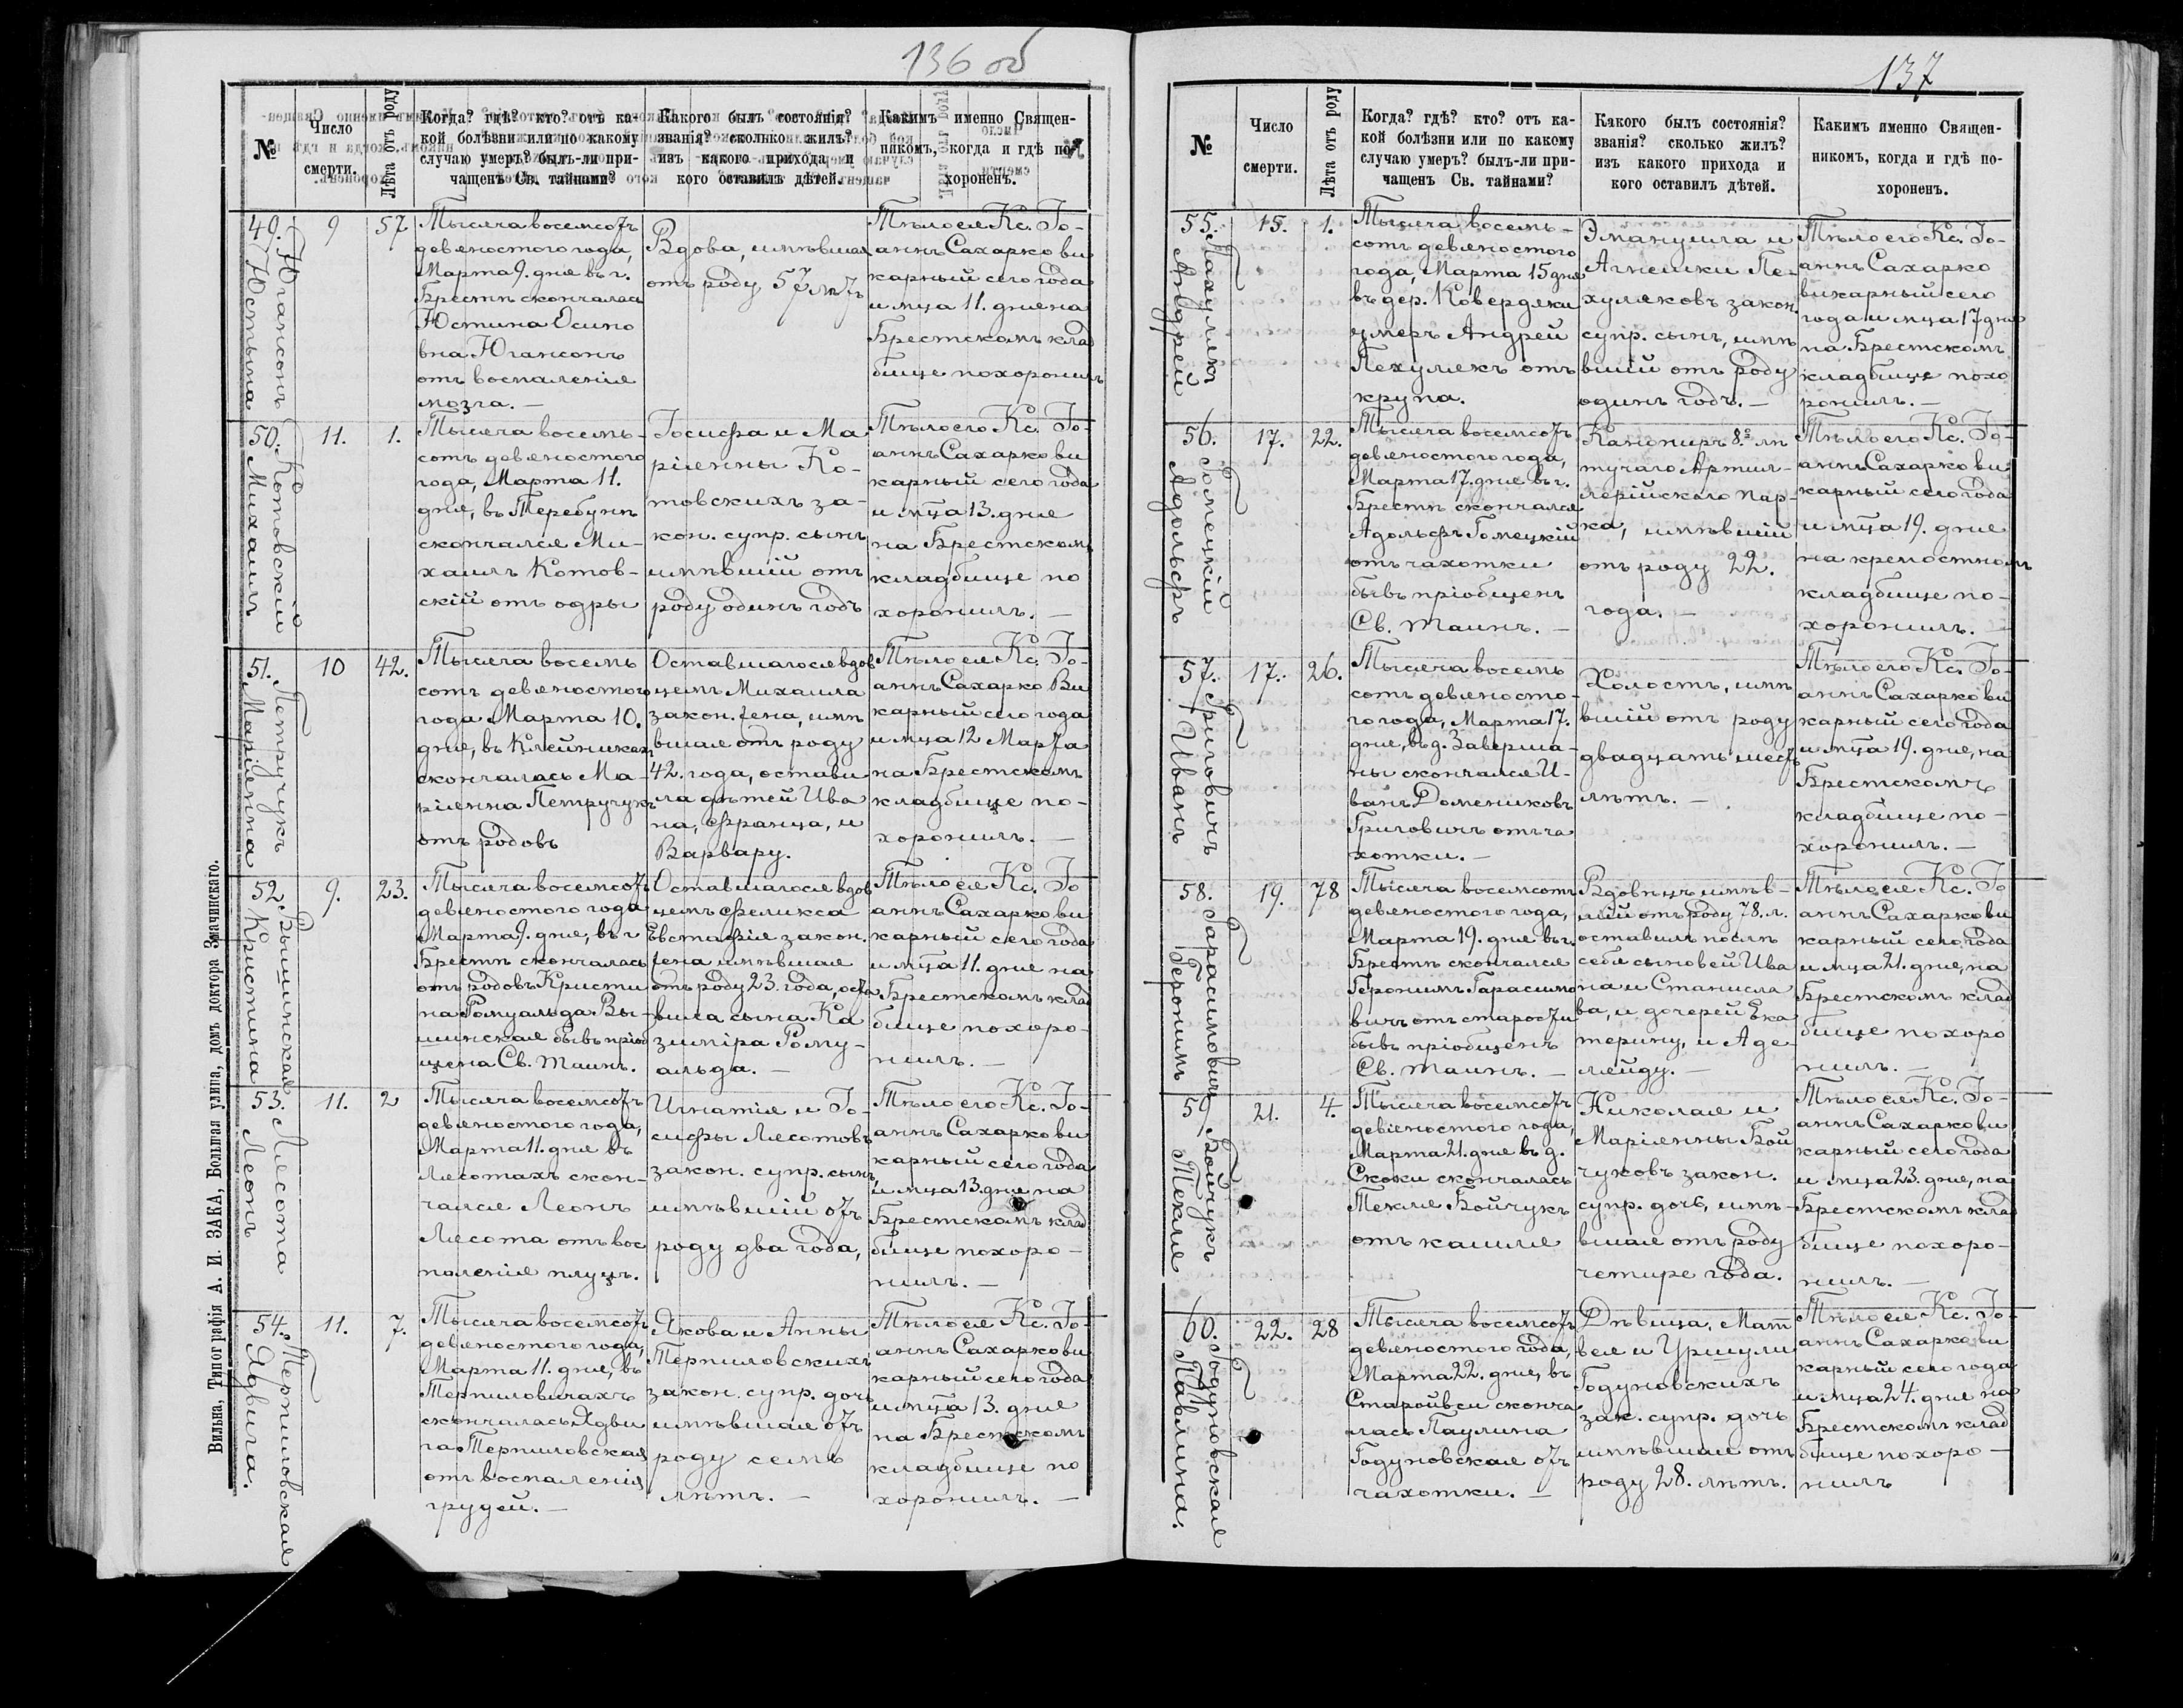 136 об
№
Число
смерти.
Лѣта отъ роду
Когда? гдѣ? кто? отъ ка-
кой болѣзни или по какому
случаю умеръ? былъ-ли при-
чащенъ Св. тайнами?
Какого былъ состоянія?
званія? сколько жилъ?
изъ какого прихода и
кого оставилъ дѣтей.
Какимъ именно Священ-
никомъ, когда и гдѣ по-
хороненъ.
49.
Югансонъ
Юстына
9
57
Тысяча восемсотъ
девяностого года,
Марта 9. дня въ г.
Брестѣ скончалась
Юстина Осипо
вна Югансонъ
отъ воспаленія
мозга. —
Вдова, имѣвшая
отъ роду 57 лѣтъ
Тѣло ея Кс. Іо-
аннъ Сахарко ви
карный сего года
и мца 11. дня на
Брестскомъ клад
бище похоронилъ
50.
Котовский
Михаилъ
11.
1.
Тысяча восемь-
сотъ девяностого
года, Марта 11.
дня, въ Теребунѣ
скончался Ми-
хаилъ Котов-
скій отъ одры
Іосифа и Ма
ріянны Ко-
товскихъ за-
кон. супр. сынъ
имѣвшій отъ
роду одинъ годъ
Тѣло его Кс. Іо-
аннъ Сахарко ви
карный сего года
и мца 13. дня
на Брестскомъ
кладбище по
хоронилъ. —
51.
Петручукъ
Маріянна
10
42.
Тысяча восемь
сотъ девяностого
года Марта 10.
дня, въ Клейникахъ
скончалась Ма-
ріянна Петручукъ
отъ родовъ
Оставшагося вдов
цемъ Михаила
закон. жена, имѣ
вшая отъ роду
42. года, остави
ла дѣтей Ива
на, Франца, и
Варвару.
Тѣло ея Кс. Іо-
аннъ Сахарко Ви
карный сего года
и мца 12 Марта
на Брестскомъ
кладбище по-
хоронилъ. —
52.
Вышинская
Кристина
9.
23.
Тысяча восемсотъ
девяностого года
Марта 9. дня, въ г
Брестѣ скончалась
отъ родовъ Кристи
на Ромуальда Вы-
шинская бывъ пріоб
щена Св. Таинъ.
Оставшагося вдов
цемъ Феликса
Евстафія закон.
жена имѣвшая
отъ роду 23. года, оста
вила сына Ка
зиміра Рому-
альда. —
Тѣло ея Кс. Іо
аннъ Сахарко ви
карный сего года
и мца 11. дня на
Брестскомъ клад
бище похоро-
нилъ. —
53.
Лясота
Леонъ
11.
2
Тысяча восемсотъ
девяностого года,
Марта 11. дня въ
Лясотахъ скон-
чался Леонъ
Лясота отъ вос
поленія плуцъ.
Игнатія и Іо-
сифы Лясотовъ
закон. супр. сынъ,
имѣвшій отъ
роду два года,
Тѣло его Кс. Іо-
аннъ Сахарко ви
карный сего года
и мца 13. дня на
Брестскомъ клад
бище похоро-
нилъ. —
54.
Терпиловская
Ядвига.
11.
7.
Тысяча восемсотъ
девяностого года,
Марта 11. дня, въ
Терпиловичахъ
скончалась Ядви
га Терпиловская
отъ воспаленія
грудей. —
Якова и Анны
Терпиловскихъ
закон. супр. дочь
имѣвшая отъ
роду семь
лѣтъ. —
Тѣло ея Кс. Іо-
аннъ Сахарко ви
карный сего года
и мца 13. дня
на Брестскомъ
кладбище по
хоронилъ. —
Вильна, Типографія А. И. ЗАКА, Большая улица, домъ доктора Змачинскаго.
137
№
Число
смерти.
Лѣта отъ роду
Когда? гдѣ? кто? отъ ка-
кой болѣзни или по какому
случаю умеръ? былъ-ли при-
чащенъ Св. тайнами?
Какого былъ состоянія?
званія? сколько жилъ?
изъ какого прихода и
кого оставилъ дѣтей.
Какимъ именно Священ-
никомъ, когда и гдѣ по-
хороненъ.
55.
Пахулякъ
Андрей
15.
1.
Тысяча восемь-
сотъ девяностого
года, Марта 15 дня
въ дер. Ковердяки
умеръ Андрей
Пехулякъ отъ
крупа.
Эмануила и
Агнешки Пе-
хуляковъ закон.
супр. сынъ, имѣ
вшій отъ роду
одинъ годъ. —
Тѣло его Кс. Іо-
аннъ Сахарко
викарный сего
года и мца 17 дня
на Брестскомъ
кладбище похо
ронилъ. —
56.
Гомецкій
Адольфъ
17.
22.
Тысяча восемсотъ
девяностого года,
Марта 17. дня въ г.
Брестѣ скончался
Адольфъ Гомецкій
отъ чахотки
бывъ пріобщенъ
Св. Таинъ. —
Канониръ 8.го лѣ
тучаго Артил-
лерійскаго пар-
ка, имѣвшій
отъ роду 22.
года. —
Тѣло его Кс. Іо-
аннъ Сахарко ви
карный сего года
и мца 19. дня
на крепостномъ
кладбище по-
хоронилъ. —
57.
Григовичъ
Иванъ
17.
26.
Тысяча восемь
сотъ девяносто-
го года, Марта 17.
дня, въ д. Заверша-
ны скончался И-
ванъ Домениковъ
Григовичъ отъ ча
хотки. —
Холостъ, имѣ
вшій отъ роду
двадцать шесть
лѣтъ. —
Тѣло его Кс. Іо-
аннъ Сахарко ви
карный сего года
и мца 19. дня, на
Брестскомъ
кладбище по-
хоронилъ. —
58.
Гарасимовичъ
Геронимъ
19.
78
Тысяча восемсотъ
девяностого года,
Марта 19. дня въ г.
Брестѣ скончался
Геронимъ Гарасимо
вичъ отъ старости
бывъ пріобщенъ
Св. Таинъ. —
Вдовецъ имѣв-
шій отъ роду 78. л.
оставилъ послѣ
себя сыновей Ива
на и Станисла
ва, и дочерей Ека
терину, и Аде-
лейду. —
Тѣло ея Кс. Іо
аннъ Сахарко ви
карный сего года
и мца 21. дня, на
Брестскомъ клад
бище похоро
нилъ. —
59.
Бойчукъ
Текля
21.
4.
Тысяча восемсотъ
девяностого года,
Марта 21. дня въ д.
Скоки скончалась
Текля Бойчукъ
отъ кашля
Николая и
Маріянны Бой
чуковъ закон.
супр. дочь, имѣ-
вшая отъ роду
четире года.
Тѣло ея Кс. Іо-
аннъ Сахарко ви
карный сего года
и мца 23. дня, на
Брестскомъ клад
бище похоро-
нилъ. —
60.
Годуновская
Павлина.
22.
28
Тысяча восемсотъ
девяностого года,
Марта 22. дня, въ
Старойвси сконча
лась Паулина
Годуновская отъ
чахотки. —
Дѣвица, Мат
вея и Уршули
Годуновскихъ
зак. супр. дочь
имѣвшая отъ
роду 28. лѣтъ.
Тѣло ея Кс. Іо-
аннъ Сахарко ви
карный сего года
и мца 24. дня на
Брестскомъ клад
бище похоро-
нилъ